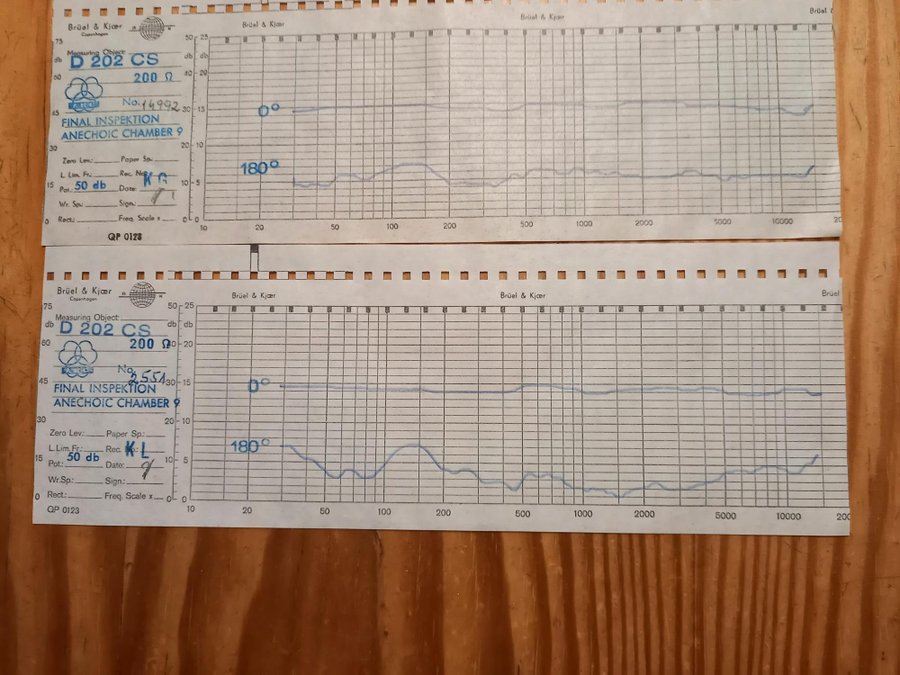 Brüel & Kjær
Copenhagen
Brüel & Kjær
Brüel & Kjær
Brüel &
75
50 25
Measuring Object:
db
D 202 CS
db db
60
200 Ω
40 20
No. 14992
45
30 15
FINAL INSPEKTION
ANECHOIC CHAMBER 9
0°
180°
30
20 10
Zero Lev.: Paper Sp:
L. Lim. Fr.: Rec. No.
15
Pot. 50 db Date:
10 5
Wr. Sp.: Sign.:
Rect.: Freq. Scale x
0
0 0
QP 0123
10 20 50 100 200 500 1000 2000 5000 10000 20
Brüel & Kjær
Copenhagen
Brüel & Kjær
Brüel & Kjær
Brüel
75
50 25
Measuring Object:
db
D 202 CS
db db
60
200 Ω
20
No. 2551
45
30 15
FINAL INSPEKTION
ANECHOIC CHAMBER 9
0°
180°
30
20 10
Zero Lev.: Paper Sp:
L. Lim. Fr.: Rec.
KL
15
50 db
10 5
Pot.: Date:
Wr. Sp.: Sign.:
Rect.: Freq. Scale x
0
0 0
QP 0123
10 20 50 100 200 500 1000 2000 5000 10000 200